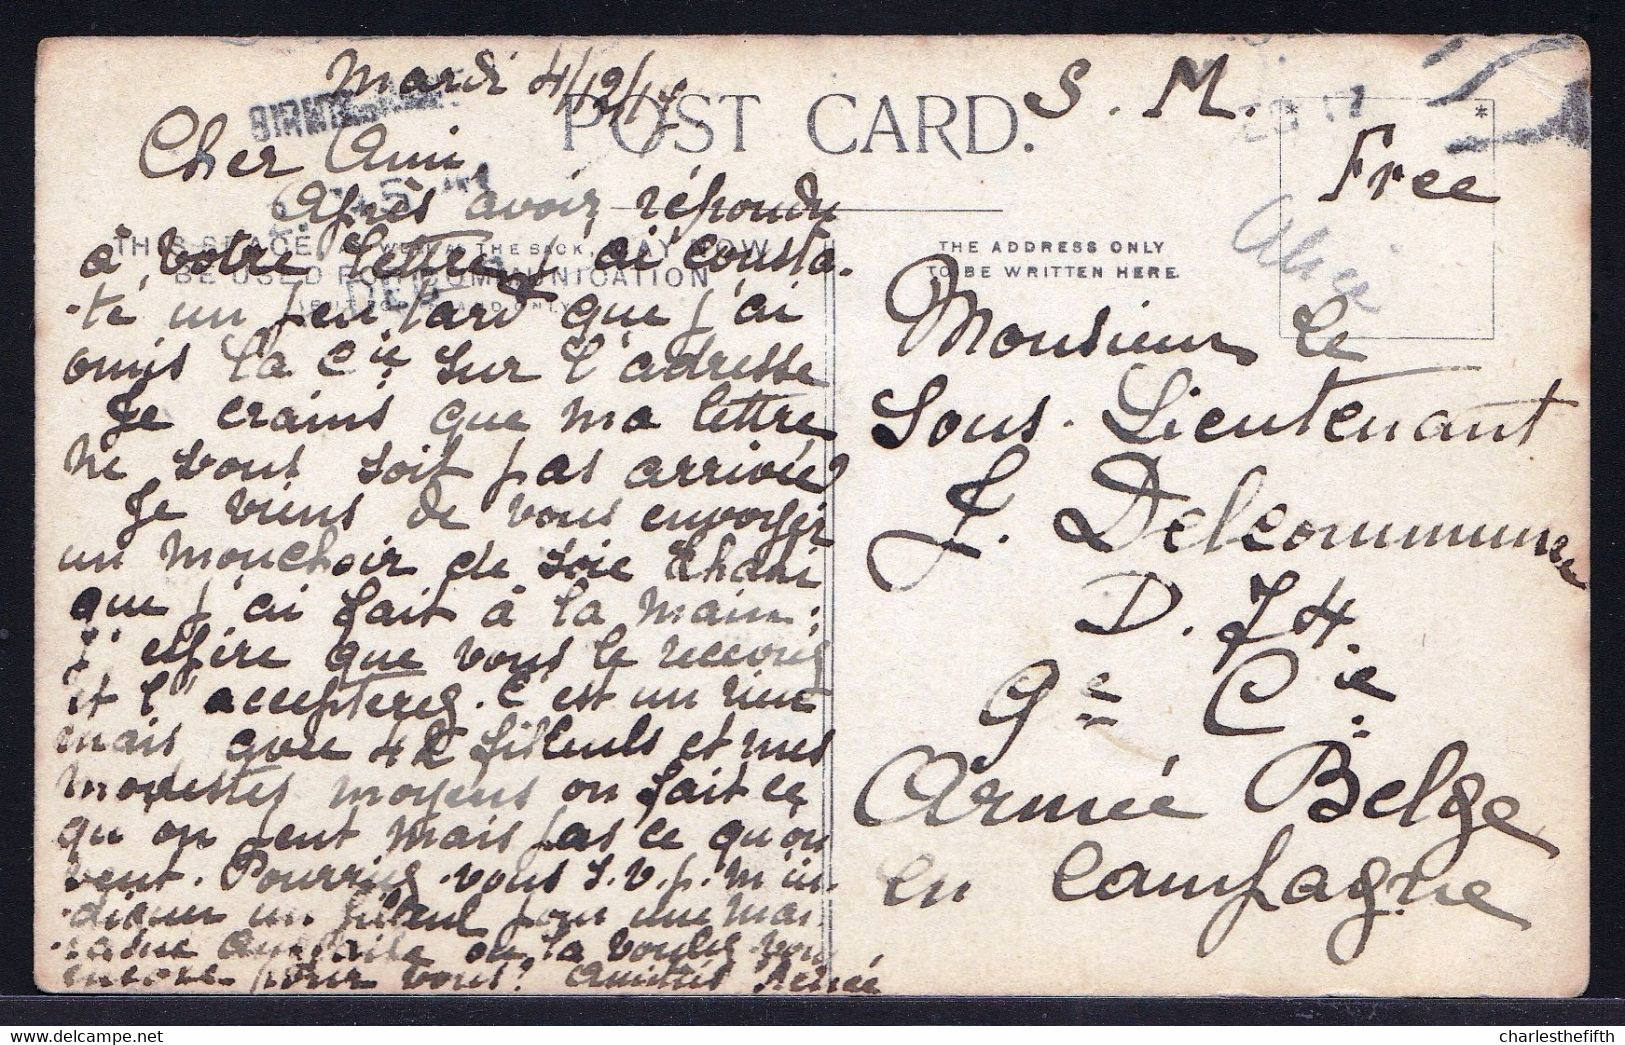 Mardi 4/12/17
Cher Ami
Après avoir répondu
à votre lettre j'ai consta-
-té un peu tard que j'ai
omis la Cie sur l'adresse
Je crains que ma lettre
ne vous soit pas arrivée
Je viens de vous envoyer
un mouchoir de soie khaki
que j'ai fait à la main;
J'espère que vous le recevrez
et l'accepterez. C'est un rien
mais avec 42 filleuls et mes
modestes moyens on fait ce
qu'on peut mais pas ce qu'on
veut. Pourriez-vous S.V.p. m'in-
-diquer un filleul pour une mar-
-raine anglaise ou la voulez-vous
encore pour vous? Amitiés Renée
POST CARD.
THIS SPACE, AS WELL AS THE BACK, MAY NOW
BE USED FOR COMMUNICATION
S. M.
Free
THE ADDRESS ONLY
TO BE WRITTEN HERE.
Monsieur le
Sous-Lieutenant
J. Delcommune
D. 74
9e Cie
Armée Belge
en campagne
charlesthefifth